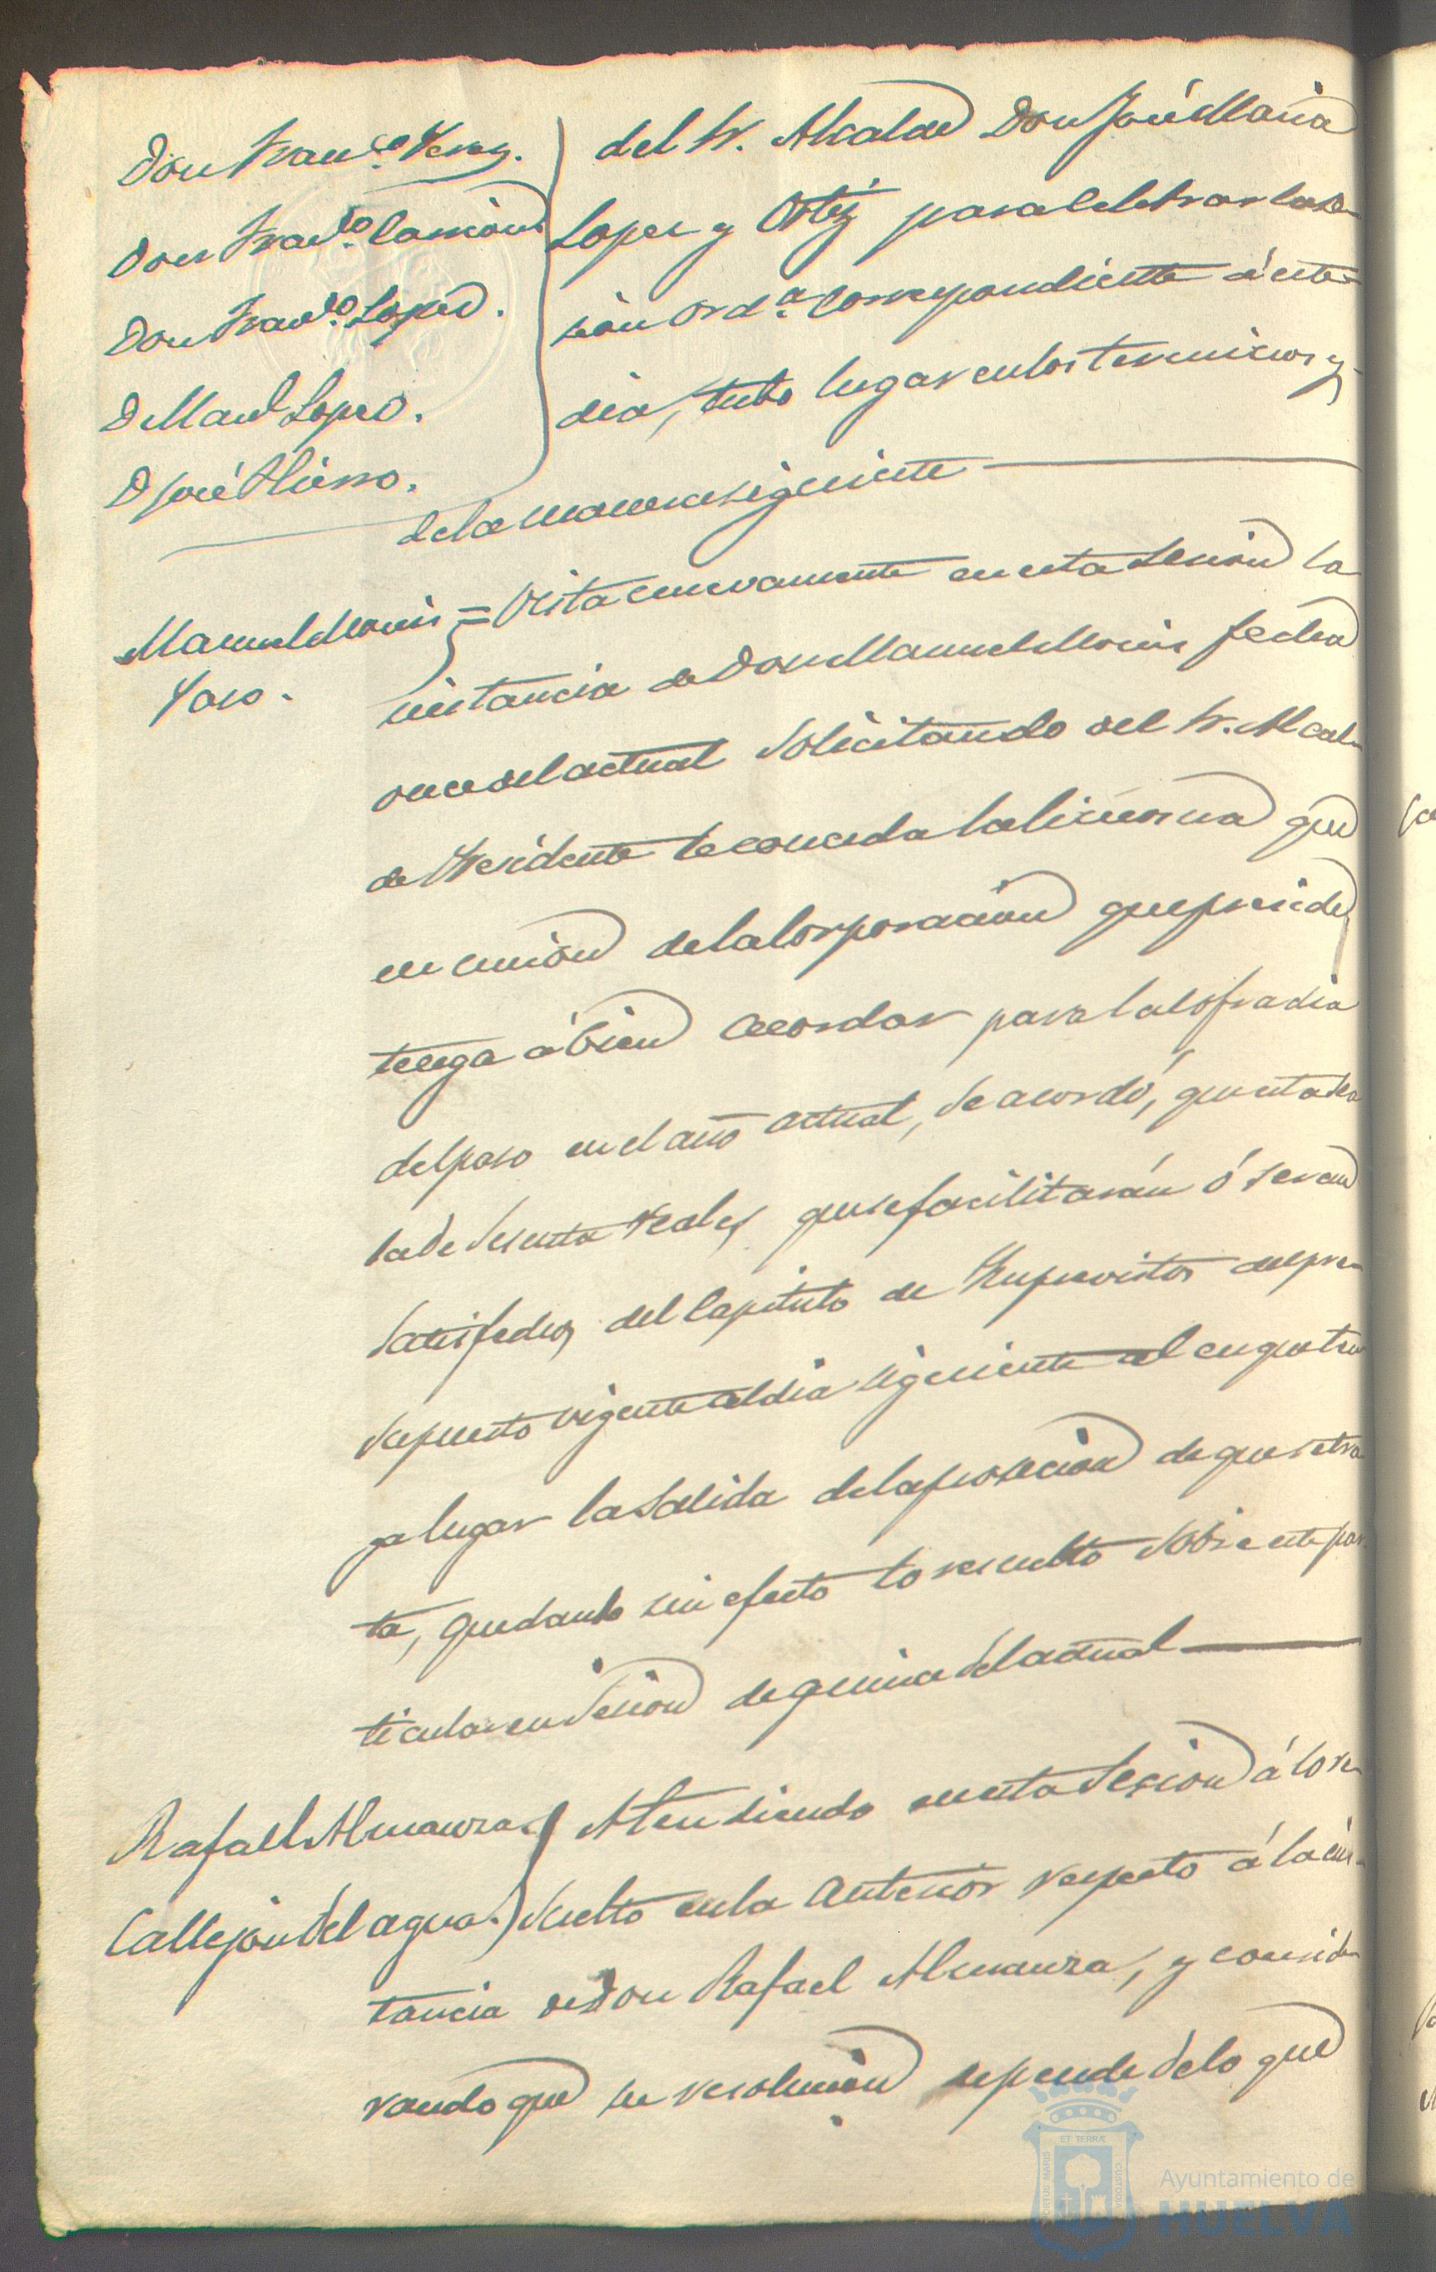 Don Fran.co Perez.
Don Fran.co Carrion
Don Fran.co Lopez.
D Man.l Lopez.
D José Hierro.
del Sr. Alcalde Don José Maria
Lopez y Ortiz para celebrar la se-
sion Ord.a correspondiente á este
dia, tubo lugar en los terminos y
de la manera siguiente
Manuel
Paso.
Vista nuevamente en esta Sesion la
instancia de Don Manuel fecha
once del actual solicitando del Sr. Alcal-
de Presidente le conceda la limosna que
en union de la Corporacion que preside,
tenga á bien acordar para la Cofradia
del paso en el año actual, se acordó, que esta sea
la de sesenta reales que se facilitarán ó seran
satisfechos del Capitulo de Imprevistos del pre-
supuesto vigente al dia siguiente al en que ten-
ga lugar la salida de la prosecion de que se tra-
ta, quedando sin efecto lo resuelto sobre este par-
ticular en Sesion de quince del actual
Rafael Almanza
Callejon del agua.
Atendiendo en esta Sesion á lo re-
suelto en la anterior respecto á la ins-
tancia de Don Rafael Almanza, y conside-
rando que su resolucion depende de lo que
Ayuntamiento de
HUELVA